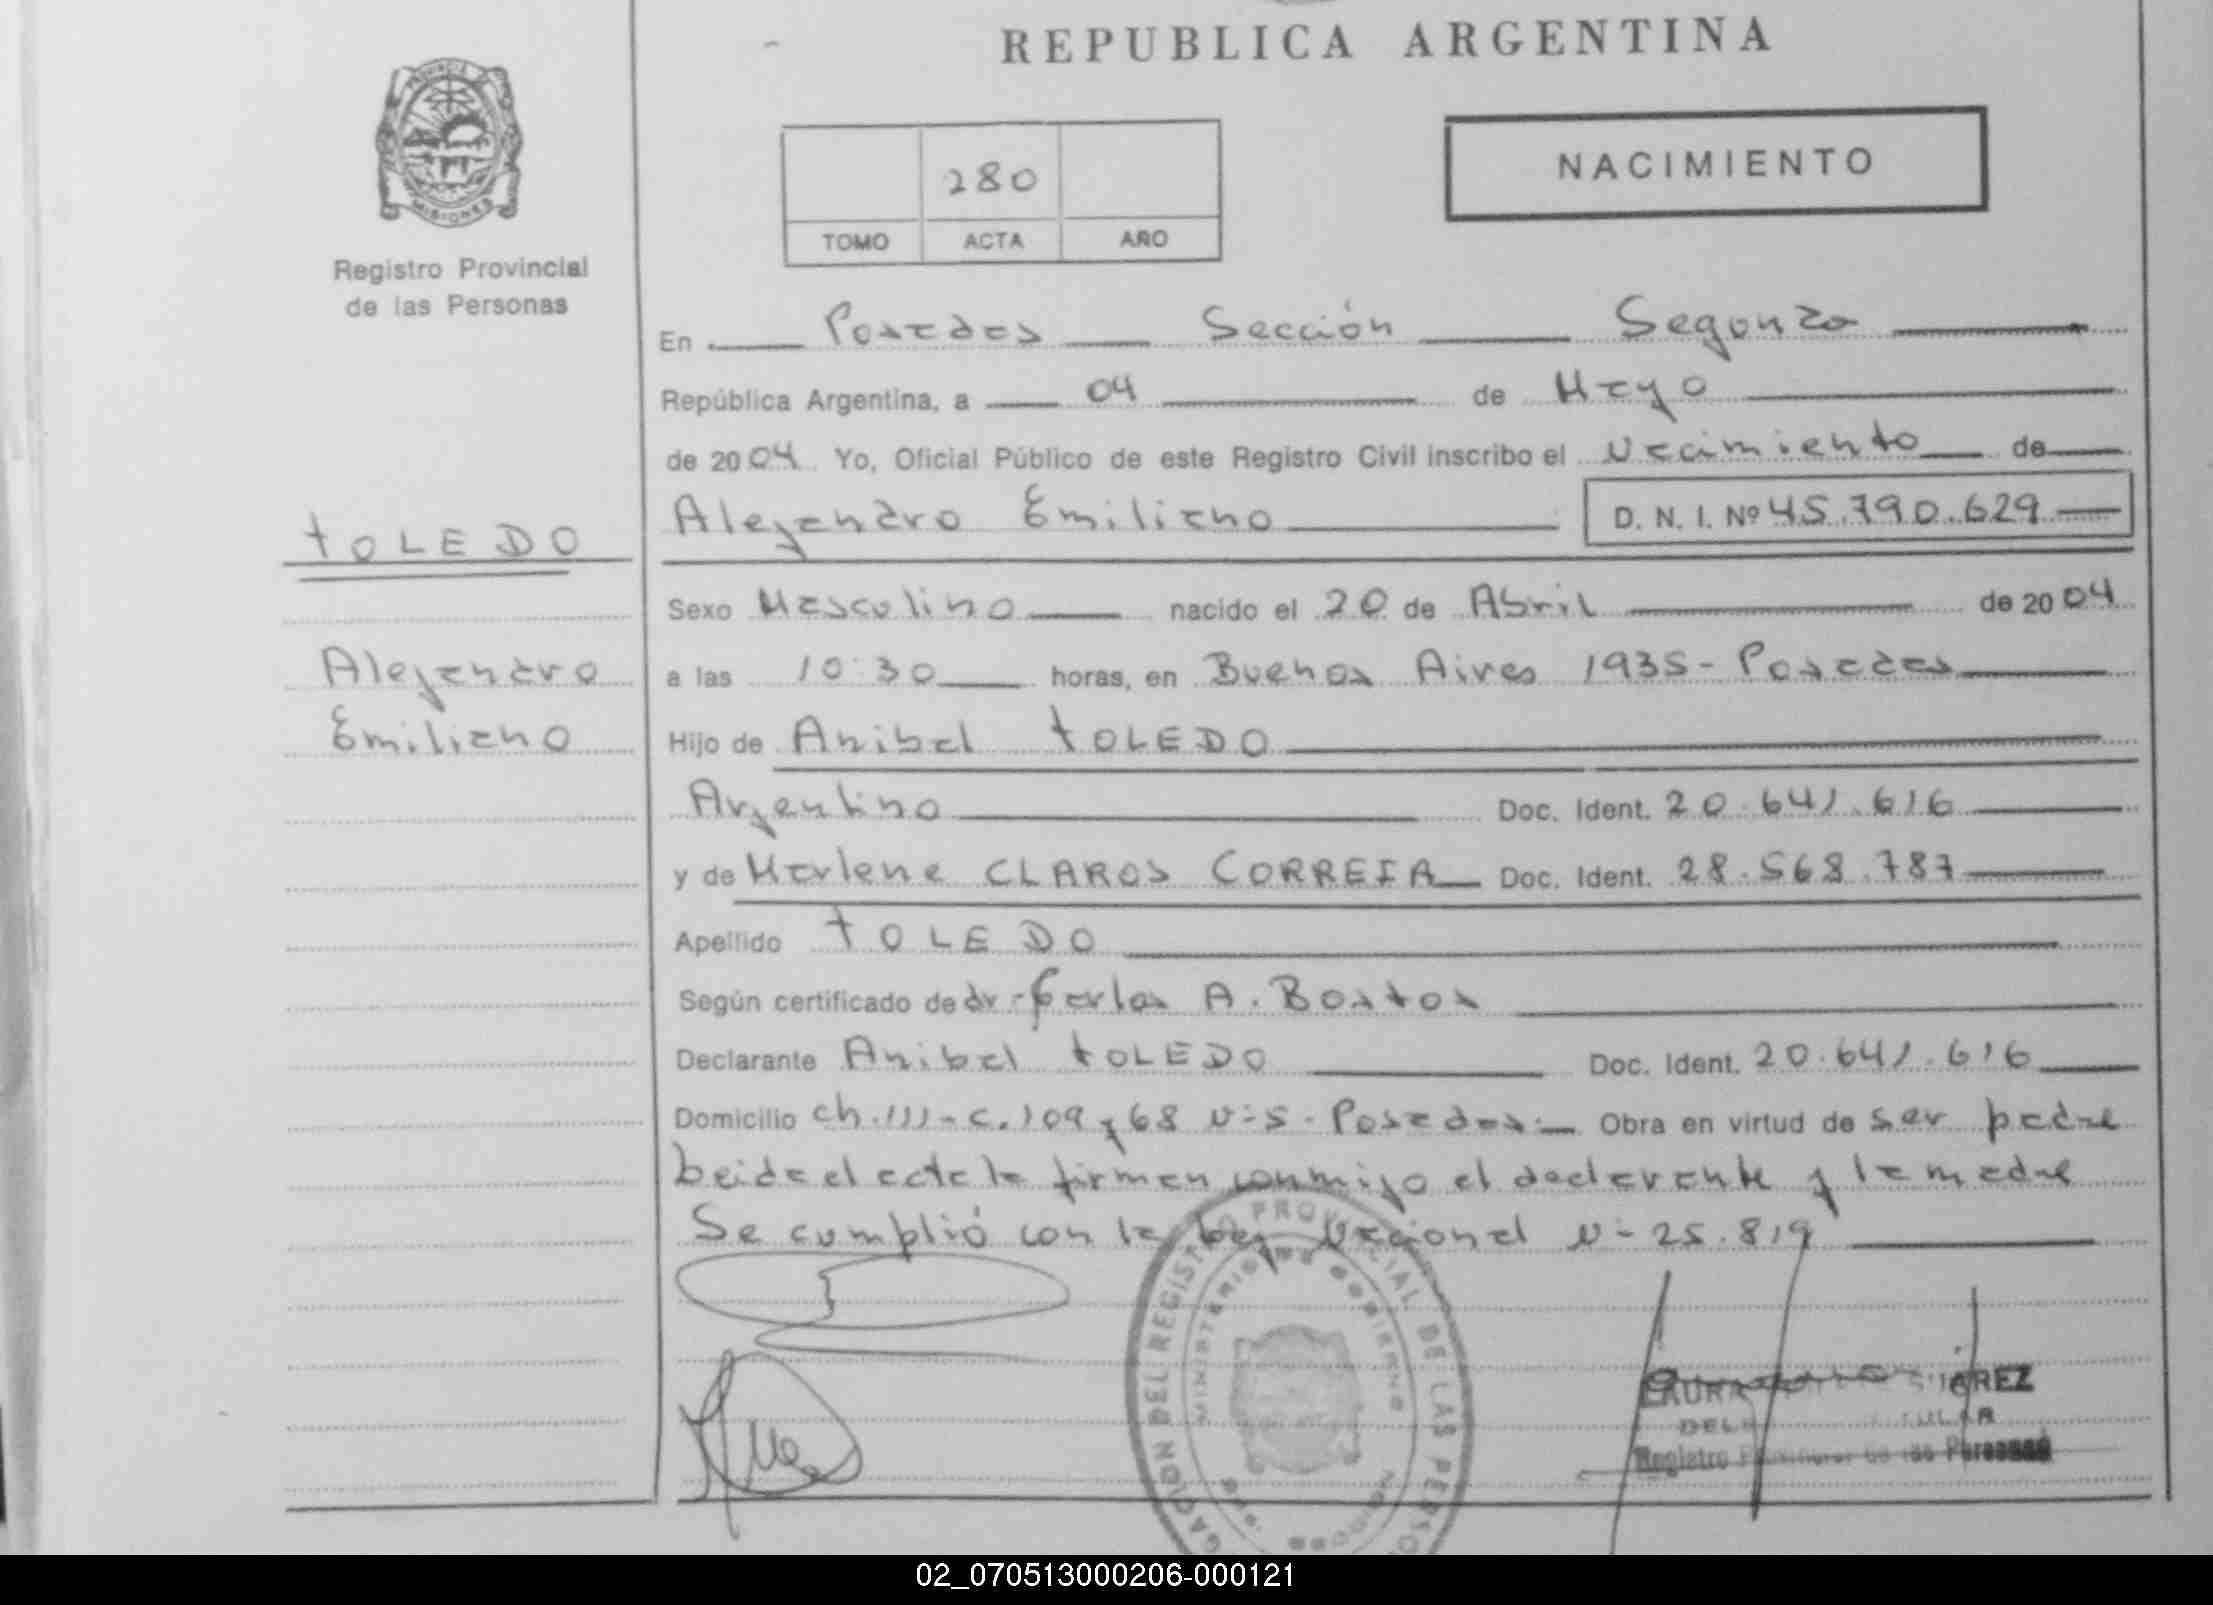 REPUBLICA ARGENTINA
PROVINCIA
MISIONES
Registro Provincial
de las Personas
280
TOMO ACTA AÑO
NACIMIENTO
En Posadas Sección Segunda
República Argentina, a 04 de Mayo
de 2004 Yo, Oficial Público de este Registro Civil inscribo el Nacimiento de
TOLEDO
Alejandro Emiliano D. N. I. Nº 45.790.629
Sexo Masculino nacido el 20 de Abril de 2004
Alejandro
a las 10:30 horas, en Buenos Aires 1935 - Posadas
Emiliano
Hijo de Anibal TOLEDO
Argentino Doc. Ident. 20.641.616
y de Marlene CLAROS CORREIA Doc. Ident. 28.568.787
Apellido TOLEDO
Según certificado de dr. Carlos A. Bostos
Declarante Anibal TOLEDO Doc. Ident. 20.641.616
Domicilio ch. 111 - c. 109 y 68 Nº S - Posadas Obra en virtud de ser padre
Leida el acta la firman conmigo el declarante y la madre
Se cumplió con la Ley Nacional Nº 25.819
GACION DEL REGISTRO PROVINCIAL DE LAS PERSO
MINISTERIO DE GOBIERNO
LAURA SUAREZ
Registro de las Personas
02_070513000206-000121